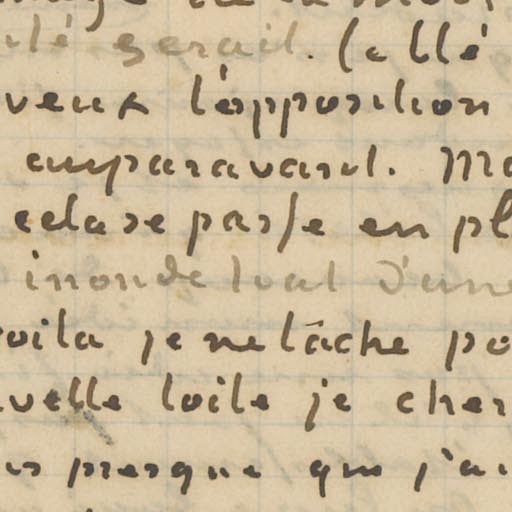 serait. Cette
veux l'opposition
auparavant.
cela se passe en pl
inonde tout d'une
voila je me lâche po
velle toile je cher
presque que j'ai